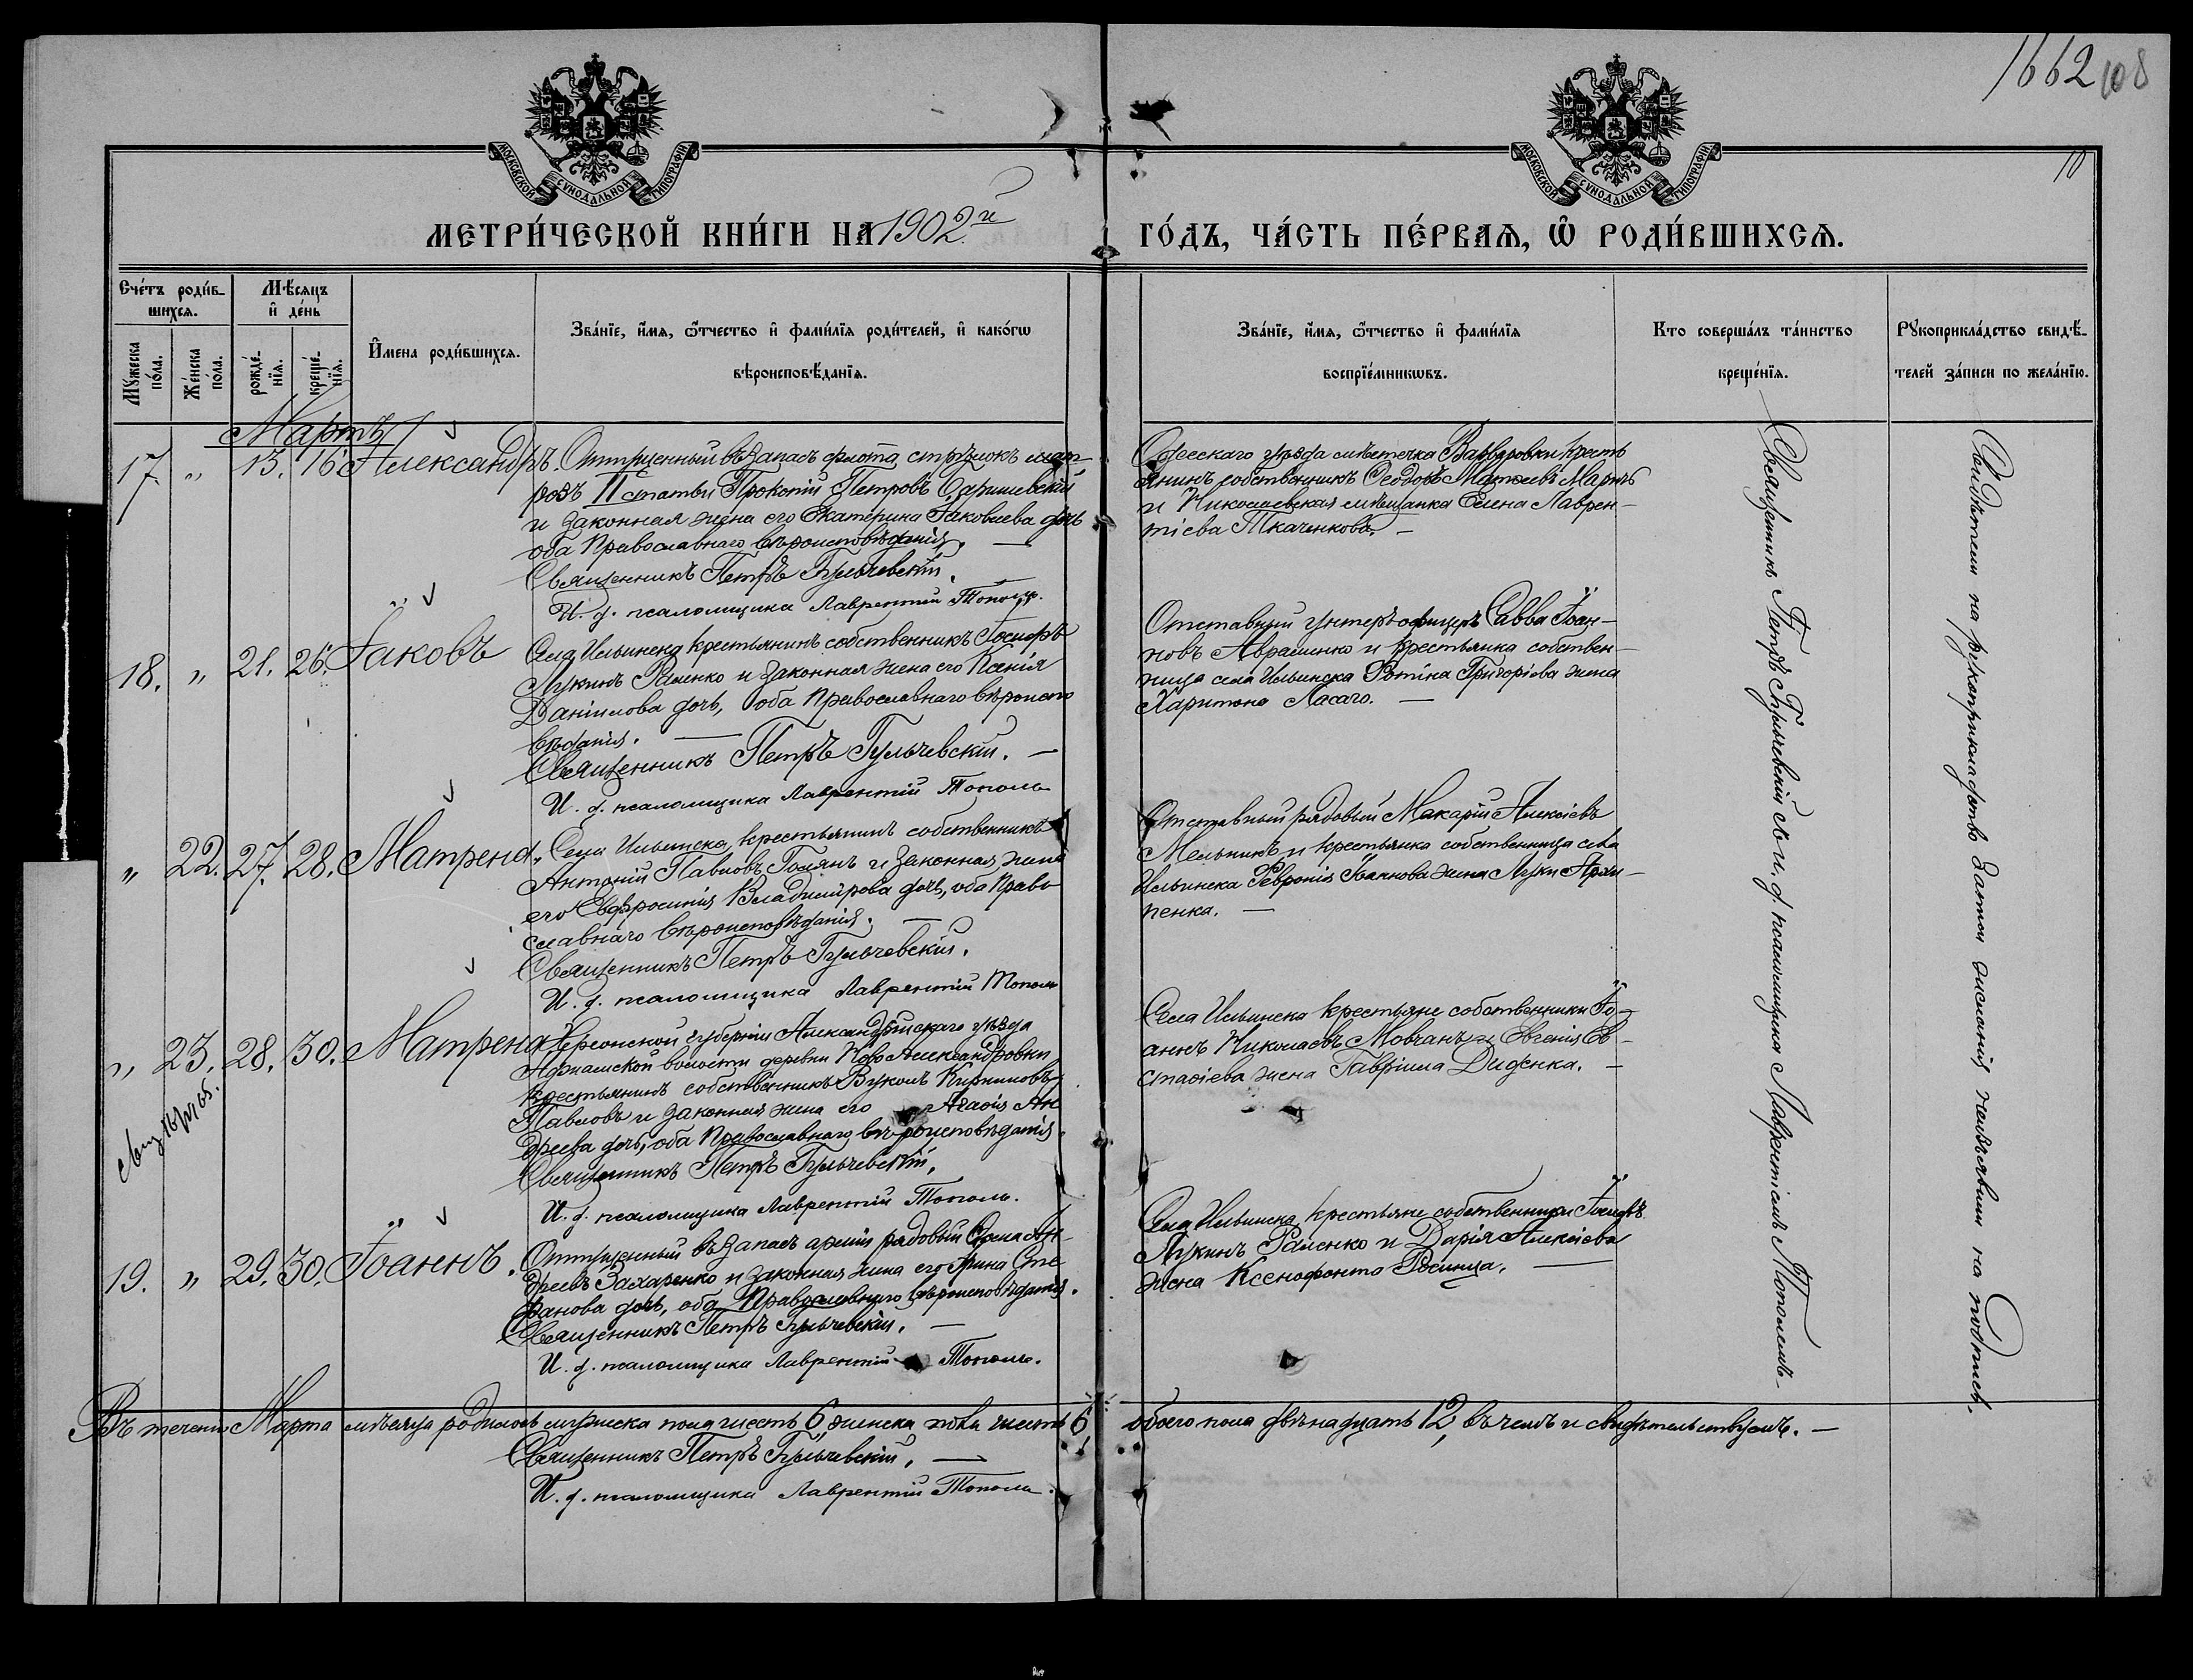 1662 108
10
МОСКОВСКОЙ СѴНОДАЛЬНОЙ ТИПОГРАФІИ
МОСКОВСКОЙ СѴНОДАЛЬНОЙ ТИПОГРАФІИ
МЕТРИ́ЧЕСКОЙ КНИ́ГИ НА 1902й ГО́ДЪ, ЧА́СТЬ ПЕ́РВАѦ, Ѡ҆ РОДИ́ВШИХСѦ.
Сче́тъ роди́в-
шихсѧ.
Мꙋжеска по́ла.
Же́нска по́ла.
Мѣ́сѧцъ
и҆ де́нь
рожде́-
нїѧ.
креще́-
нїѧ.
И҆мена роди́вшихсѧ.
Зва́нїе, и҆́мѧ, ѻ҆́тчество и҆ фами́лїѧ роди́телей, и҆ како́гѡ
вѣроисповѣ́данїѧ.
Зва́нїе, и҆́мѧ, ѻ҆́тчество и҆ фами́лїѧ
воспрїе́мникѡвъ.
Кто соверша́лъ та́инство
креще́нїѧ.
Рꙋкоприкла́дство свидѣ́-
телей за́писи по жела́нїю.
Мартъ
17. " 13. 16. Александръ.
Отпущенный въ запасъ флота стрѣлокъ мат-
росъ II статьи Прокопій Петровъ
и законная жена его Екатерина Іаковлева дочь
оба Православнаго вѣроисповѣданія. —
Священникъ Петръ Гульчевскій.
И. д. псаломщика Лаврентій Тополь.
Одесскаго уѣзда мѣстечка Варваровки кресть
янинъ собственникъ Ѳеодоръ Матѳеевъ
и Николаевская мѣщанка Елена Лаврен-
тіева Ткаченкова. —
18. " 21. 26. Іаковъ
Села Ильинска крестьянинъ собственникъ Іосифъ
Лукинъ Раленко и законная жена его Ксенія
Даніилова дочь, оба Православнаго вѣроиспо
вѣданія. —
Священникъ Петръ Гульчевскій. —
И. д. псаломщика Лаврентій Тополь
Отставный унтеръ-офицеръ Савва Іоан-
новъ Авраменко и крестьянка собствен-
ница села Ильинска Фотина Григоріева жена
Харитона Ласаго. —
" 22. 27. 28. Матрена.
Села Ильинска, крестьянинъ собственникъ
Антоній Павловъ Гоманъ и законная жена
его Евфросинія Владимірова дочь, оба Право
славнаго вѣроисповѣданія. —
Священникъ Петръ Гульчевскій.
И. д. псаломщика Лаврентій Тополь
Отставный рядовый Макарій Алексіевъ
Мельникъ и крестьянка собственница села
Ильинска Февронія Іоаннова жена Луки
пенка. —
" 23. 28. 30. Матрена
Херсонской губерніи Александрійскаго уѣзда
волости деревни Ново Александровки
крестьянинъ собственникъ Вуколъ Кирилловъ
Павловъ и законная жена его Агаѳія Ан
дреева дочь, оба Православнаго вѣроисповѣданія.
Священникъ Петръ Гульчевскій.
И. д. псаломщика Лаврентій Тополь.
Села Ильинска крестьяне собственники Іо-
аннъ Николаевъ Мовчанъ и Евгенія Ев-
стаѳіева жена Гавріила Диденка. —
19. " 29. 30. Іоаннъ.
Отпущенный въ запасъ арміи рядовый Ѳома Ан-
дреевъ Захаренко и законная жена его Ирина Сте
фанова дочь, оба Православнаго вѣроисповѣданія.
Священникъ Петръ Гульчевскій. —
И. д. псаломщика Лаврентій Тополь.
Села Ильинска, крестьяне собственники Іосифъ
Лукинъ Раленко и Дарія Алексіева
жена Ксенофонта
Священникъ Петръ Гульчевскій съ и. д. псаломщика Лаврентіемъ Тополемъ
Свидѣтели на рукоприкладство записи желанія неизъявили на подпись.
Въ теченіи Марта мѣсяца родилось мужеска пола шесть 6, женска пола шесть 6, обоего пола двѣнадцать 12, въ чемъ и свидѣтельствуемъ. —
Священникъ Петръ Гульчевскій. —
И. д. псаломщика Лаврентій Тополь.